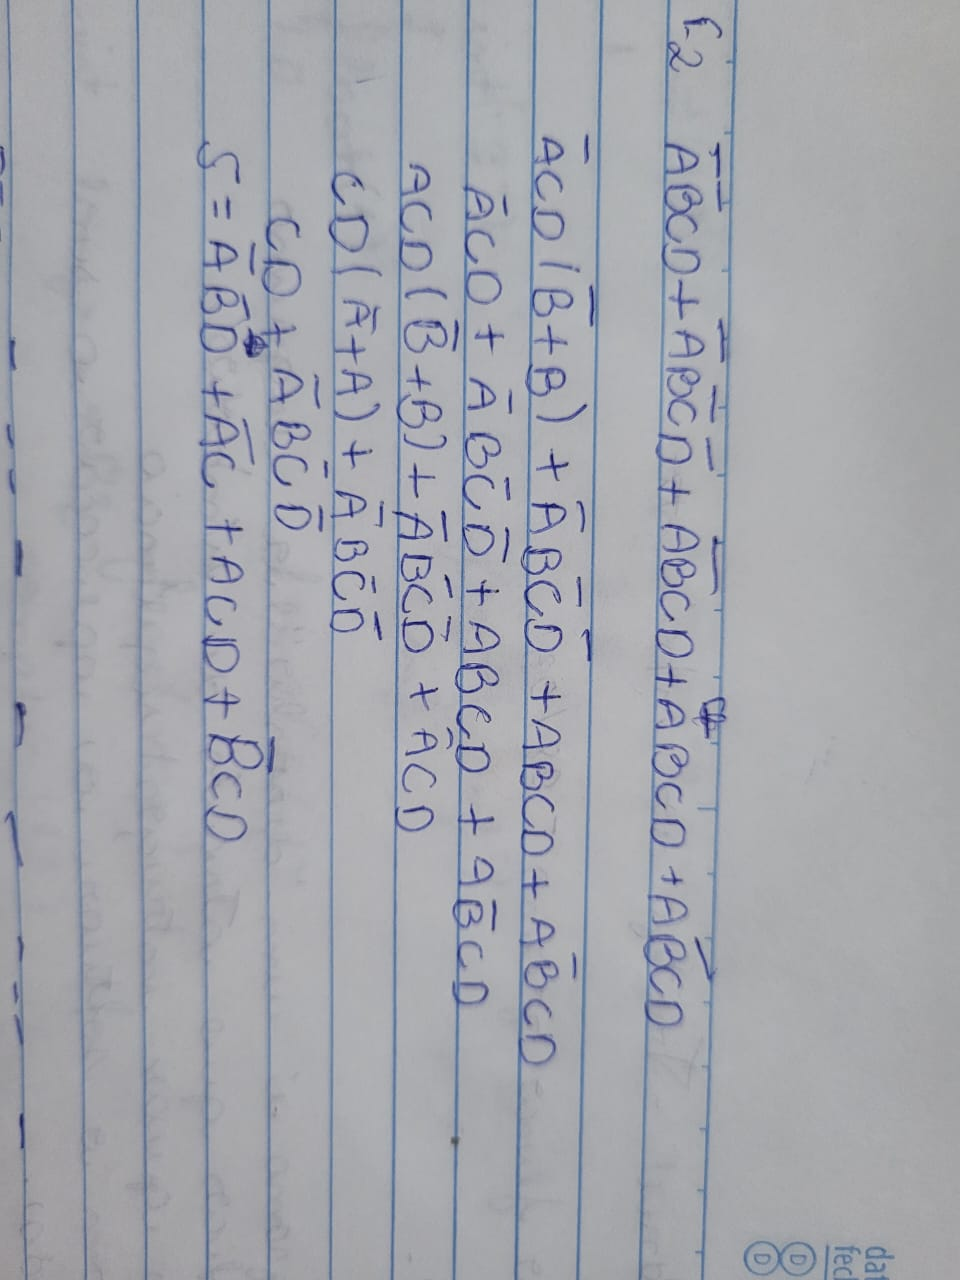 C2 A̅B̅CD + A̅BC̅D̅ + A̅BCD + ABCD + AB̅CD
A̅CD(B̅+B) + A̅BC̅D̅ + ABCD + AB̅CD
A̅CD + A̅BC̅D̅ + ABCD + AB̅CD
ACD(B̅+B) + A̅BC̅D̅ + A̅CD
CD(A̅+A) + A̅BC̅D̅
CD + A̅BC̅D̅
S = A̅B̅D + A̅C + ACD + B̅CD
da
fec
D D